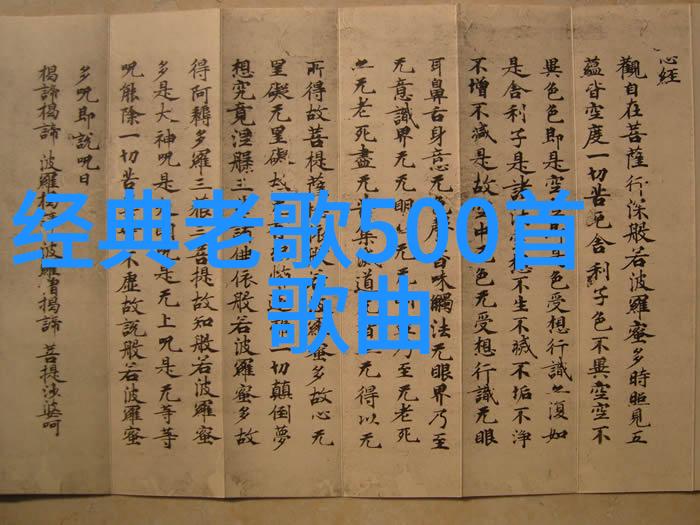 经典老歌500首
歌曲
心经
觀自在菩薩行深般若波羅蜜多時照見五
蘊皆空度一切苦厄舍利子色不異空空不
異色色即是空空是色受想行識亦復如
是舍利子是諸法空想不生不滅不垢不淨
不增不減是故空中无色无受想行識无眼
耳鼻舌身意无色聲香味觸法无眼界乃至
无意識界无无明亦无无明盡乃至无老死
亦无老死盡无集滅道无得以无
所得故菩提薩依般若波羅蜜多故心无
罣礙无罣礙故一切顛倒夢
想究竟涅槃三諸佛依般若波羅蜜多故
得阿耨多羅三藐三菩提故知般若波羅蜜
多是大神呪是大明呪是无上呪是无等等
呪能除一切苦不虛故說般若波羅蜜
多呪即說呪曰
揭諦揭諦 波羅揭 波羅僧揭諦 菩提婆呵